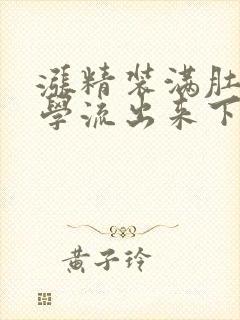 漲精装满肚
學流出来下
黄子玲